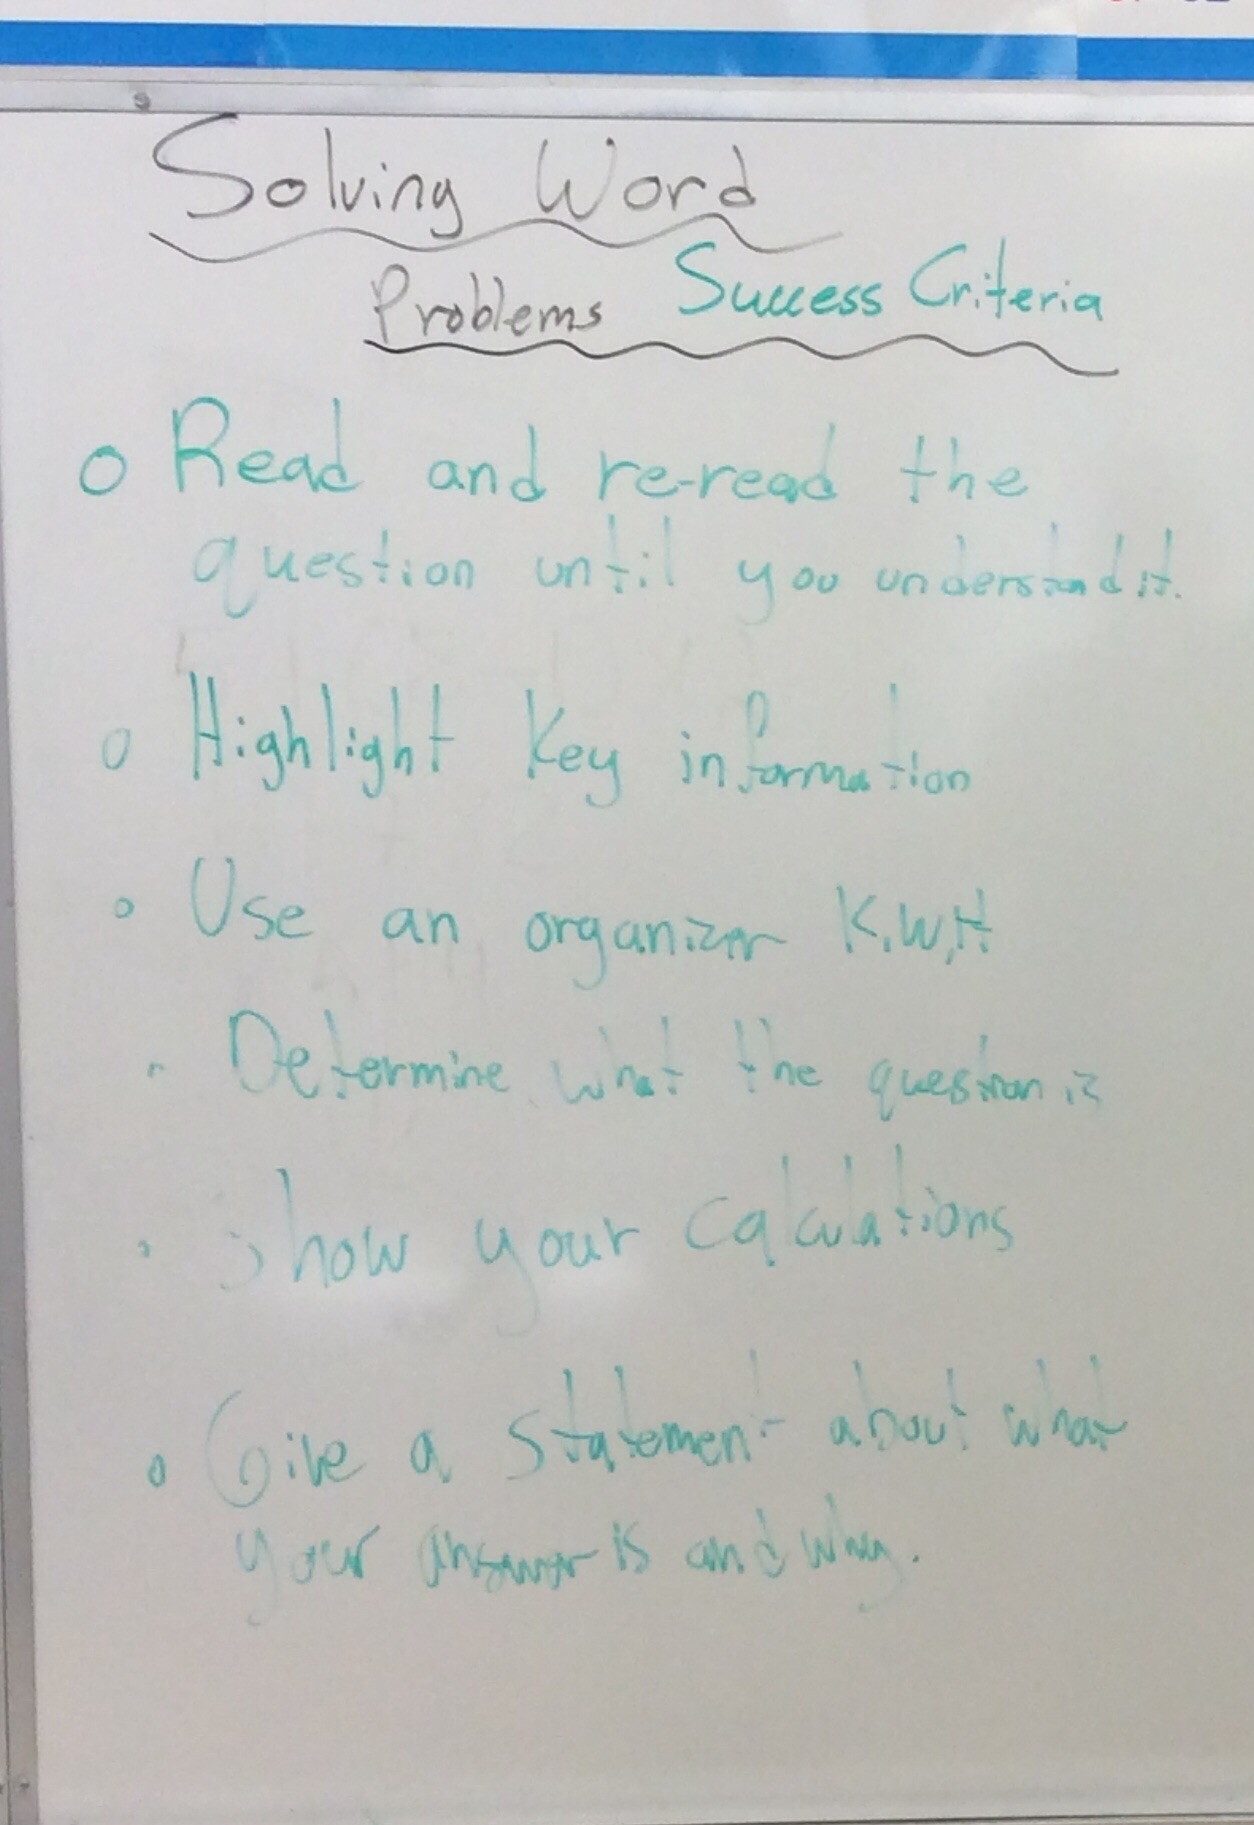 Solving Word
Problems Success Criteria
o Read and re-read the
question until you understand it.
o Highlight Key information
o Use an organizer K,W,H
Determine what the question is
Show your calculations
o Give a statement about what
your answer is and why.